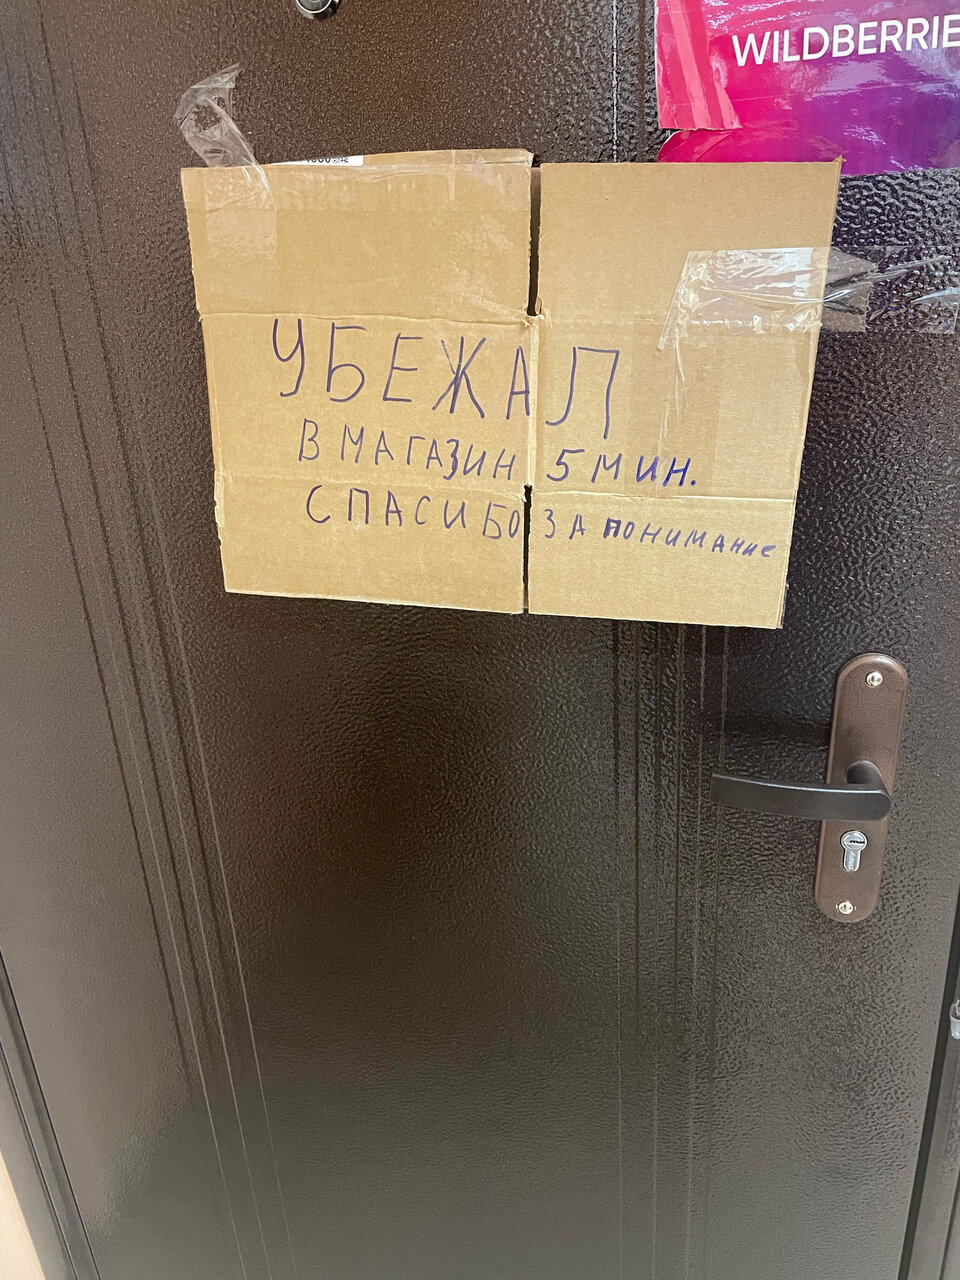 WILDBERRIE
УБЕЖАЛ
В МАГАЗИН 5 МИН.
СПАСИБО ЗА ПОНИМАНИЕ